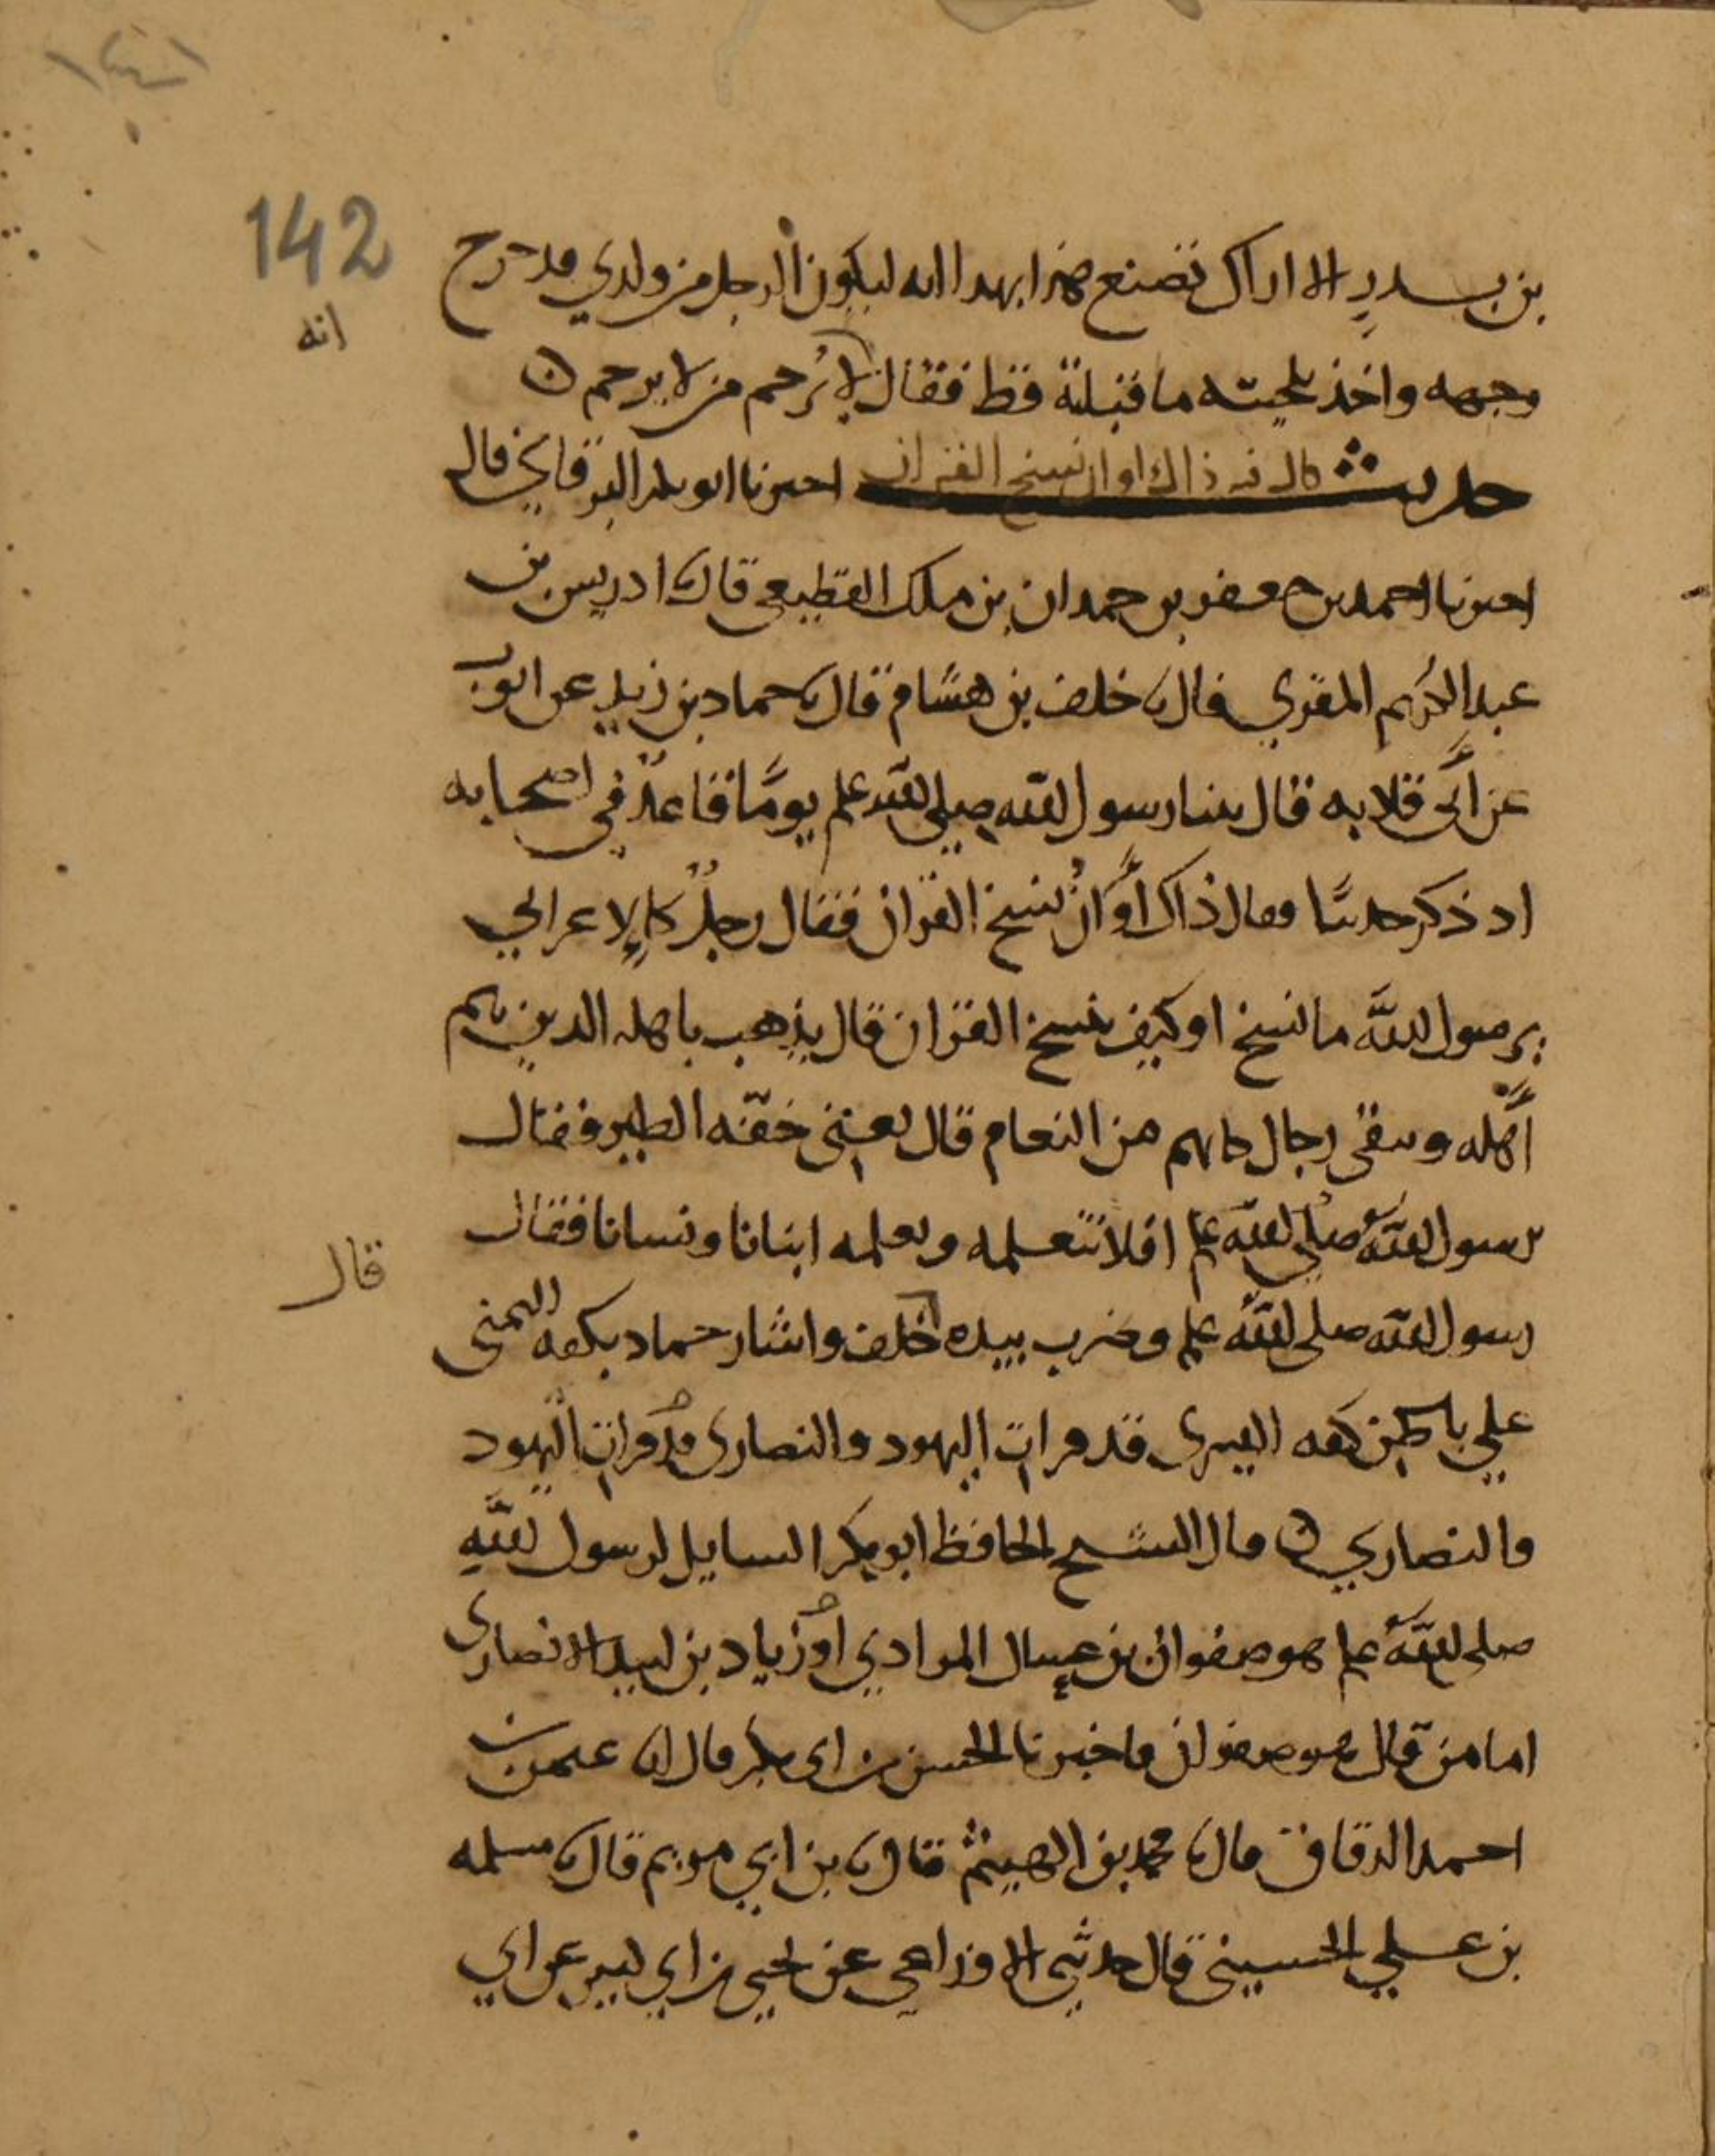 142
انه
بن بدر الا اراك تصنع هذا بهذا انه ليكون الرجل من ولدي قد خرج
وجهه واخذ بلحيته ما قبلته قط فقال لا يرحم من لا يرحم
حديث قال فيه ذاك اوان نسخ القران اخبرنا ابو بكر البرقاني قال
اخبرنا احمد بن جعفر بن حمدان بن ملك القطيعي قال نا ادريس بن
عبد الكريم المقري قال نا خلف بن هشام قال نا حماد بن زيد عن ايوب
عن ابي قلابه قال بينا رسول الله صلى الله علم يوما قاعد في اصحابه
اذ ذكر حديثا فقال ذاك اوان نسخ القران فقال رجل كالاعرابي
يرسول الله ما نسخ او كيف نسخ القران قال يذهب باهله الذين هم
اهله ويبقى رجال كانهم من النعام قال يعني خفة الطير فقال
لرسول الله صلى الله علم افلا نتعلمه ونعلمه ابنانا ونسانا فقال
قال
رسول الله صلى الله علم وضرب بيده خلف واشار حماد بكفه اليمنى
على باطن كفه اليسرى قد قرات اليهود والنصارى قد قرات اليهود
والنصاري قال الشيخ الحافظ ابو بكر السايل لرسول الله
صلى الله علم هو صفوان بن عسال المرادي او زياد بن لبيد الانصاري
اما من قال هو صفوان فاخبرنا الحسن بن ابي بكر قال انا عثمن بن
احمد الدقاق قال نا محمد بن الهيثم قال نا بن ابي مريم قال نا مسلمه
بن علي الحسيني قال حدثني الاوزاعي عن يحيى بن ابي كثير عن ابي